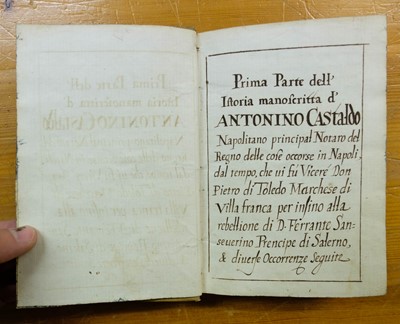 Prima Parte dell'
Istoria manoscritta d'
ANTONINO CASTALDO
Napolitano principal Notaro del
Regno delle cose occorse in Napoli
dal tempo, che vi fù Vicerè Don
Pietro di Toledo Marchese di
Villa franca per insino alla
rebellione di D. Ferrante San-
severino Prencipe di Salerno,
& diverse Occorrenze seguite